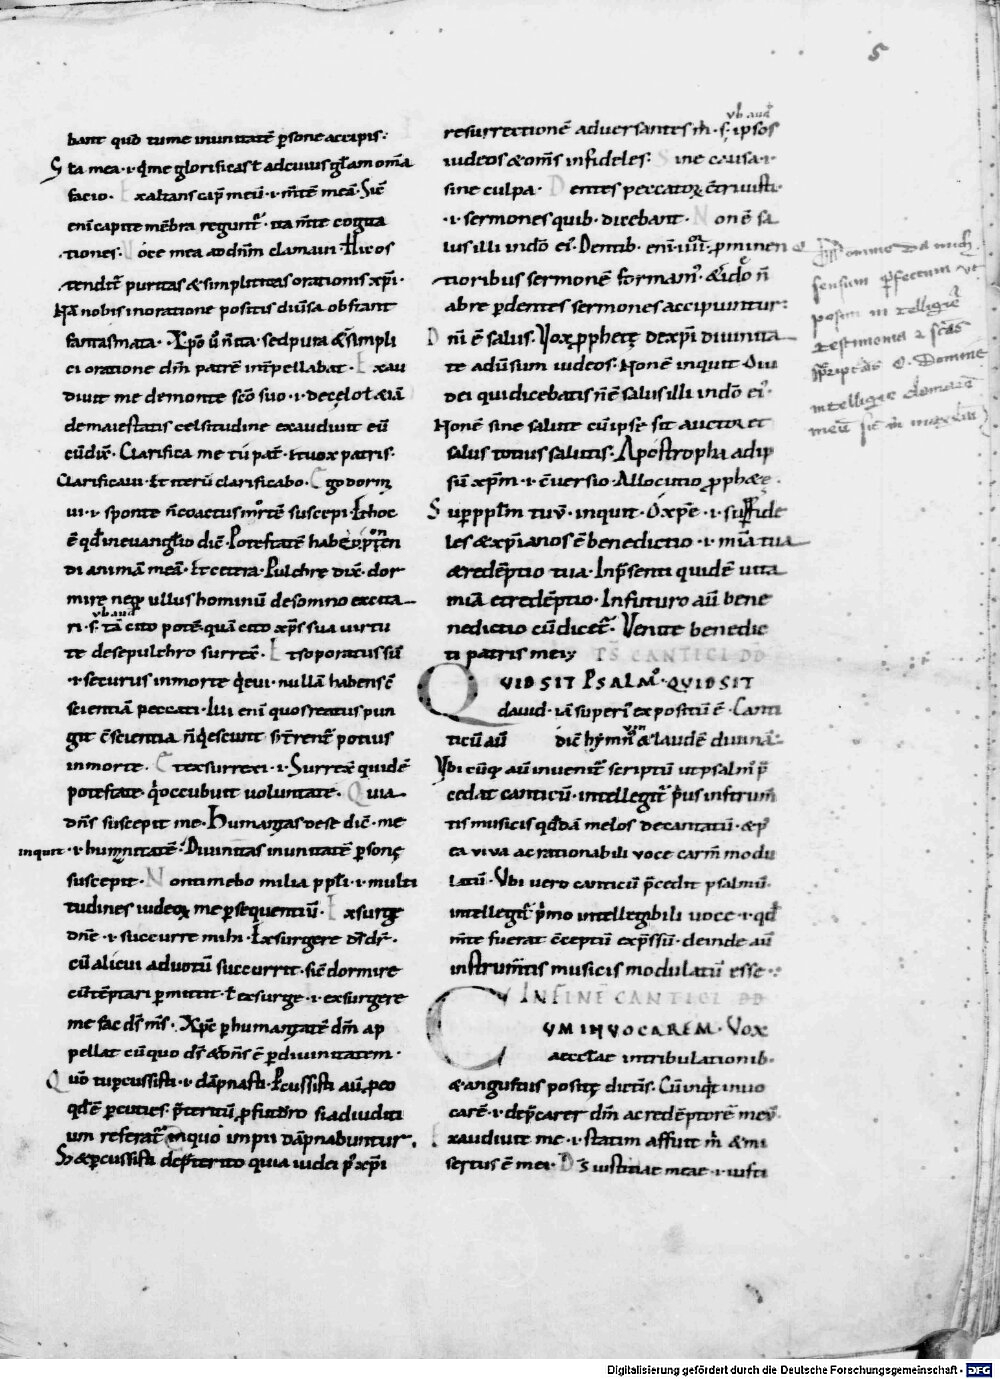 5
bant quod tu me in unitatē psone accipis·
Gła mea·i·q̇ me glorificast ad cuius głam om̄a
facio· Exaltans cap̄ meū·i·m̄tē meā· Sic̄
eni capite mēbra regunt̄ ita m̄te cogita
tiones· Voce mea ad dn̄m clamavi· hic os
tendit̄ puritas & simplicitas orationis xp̄i·
Nā nobis in oratione positis diūsa obstant
fantasmata· Xp̄o ū n̄ ita· sed pura & simpli
ci oratione dm̄ patrē int̄pellabat· Exau
divit me de monte scō suo·i·de celo ł &iā
de maiestatis celsitudine exaudivit eū
cū dix̄· Clarifica me tū pat̄· Et vox patris·
Clarificavi· Et iterū clarificabo· Ego dorm
ivi·i·sponte n̄ coactus mortē suscepi· Et hoc
ē qd̄ in evangłio dic̄· Potestatē habeo ponen
di animā meā· Et cetera· Pulchre dix̄· dor
mire neq; ullus hominū de somno excita
vb aud
ri·s· tā cito potē· quā cito xp̄s sua virtu
te de sepulchro surrex̄· Et soporatus sū
·i·securus in morte q̇evi· nullā habens c̄
scientiā peccati· Illi eni quos reatus pun
git c̄scientia n̄ q̇escunt s; t̄rent̄ potius
in morte· Et exsurrexi·i· Surrex̄ quidē
potestate· q̇ occubuit voluntate· Quia
dn̄s suscepit me· Humanitas de se dic̄· me
inquit·i·humnitatē· Divinitas in unitatē psonę
suscepit· Non timebo milia ppłi·i·multi
tudines iudeoꝝ me psequentiū· Exsurge
dn̄e·i·succurre mihi· Exsurgere dr̄·
cū alicui ad votū succurrit· sic̄ dormire
cū tēptari pmittit· ł exsurge·i·exsurgere
me fac ds̄ ms̄· Xp̄c p humanitatē dm̄ ap
pellat cū quo ds̄ & dn̄s ē p divinitatem·
Qūo tu pcussisti·i·dāpnasti· Pcussisti aū p eo
qd̄ ē pcuties· p̄teritū p futuro si ad iudici
um referat̄ in quo impii dāpnabuntur·
S; & pcussisti de p̄terito quia iudei p̄ xp̄i
vb aud
resurrectionē adversantes m̄·s·ipsos
iudeos & oms̄ infideles· Sine causa·i·
sine culpa· Dentes peccatoꝝ c̄trivisti·
·i·sermones quib; dicebant· Non ē sa
lus illi in dō ei· Dentib; eni prominen
tioribus sermonē formam̄· & idō n̄
ab re p dentes sermones accipiuntur·
Dni ē salus· Vox pphetę de xp̄i divinita
te adūsum iudeos· Non ē inquit· O iu
dei qui dicebatis n̄ ē salus illi in dō ei·
Non ē sine salute cū ipse sit auctor et
salus totius salutis· Apostropha ad ip
sū xp̄m·i·c̄versio· Allocutio pphetę·
Sup ppłm tuū· inquit· O xp̄e·i·sup fide
les & xp̄ianos ē benedictio·i·mi͞a tua
& redēptio tua· In p̄senti quidē vita
mi͞a et redēptio· In futuro aū bene
nedictio cū dicet̄· Venite benedic
ti patris mei· TS CANTICI DD
QVID SIT PSALM· QVID SIT
david· iā superi expositū ē· Canti
ticū aū dic̄ hymn & laudē divinā·
Ubi cūq; aū invenit̄ scriptū ut psalm p̄
cedat canticū· intellegit̄ p̄us instrum̄
tis musicis qd̄dā melos decantatū· & p̄
ea viva ac rationabili voce carm̄ modu
latū· Ubi vero canticū p̄cedit psalmū·
intellegit̄ p̄mo intellegibili voce·i·qd̄
m̄te fuerat c̄ceptū exp̄ssū· deinde aū
instrum̄tis musicis modulatū esse·
IN FINĒ CANTICI DD
CVM INVOCAREM· Vox
aeccłae in tribulationib;
& angustiis positę dictis· Cū inq̇t invo
carē·i·dep̄carer dm̄ ac redēptorē meū·
Exaudivit me·i·statim affuit m̄ & mi
sertus ē mei· Ds̄ iustitiae meae·i·iusti
domine da mich
sensum perfectum ut
possim intelligere
testimonia 
Domine
intelligere clamorē
meū
Digitalisierung gefördert durch die Deutsche Forschungsgemeinschaft - DFG